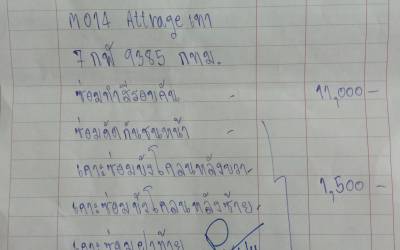 M014 Attrage เทา
7 กฬ 9385 กทม.
ซ่อมทำสีรอบคัน - 11,000-
ซ่อมดัดกันชนหน้า -
เคาะซ่อมบังโคลนหลังขวา- 1,500-
เคาะซ่อมบังโคลนหลังซ้าย-
เคาะซ่อมฝาท้าย